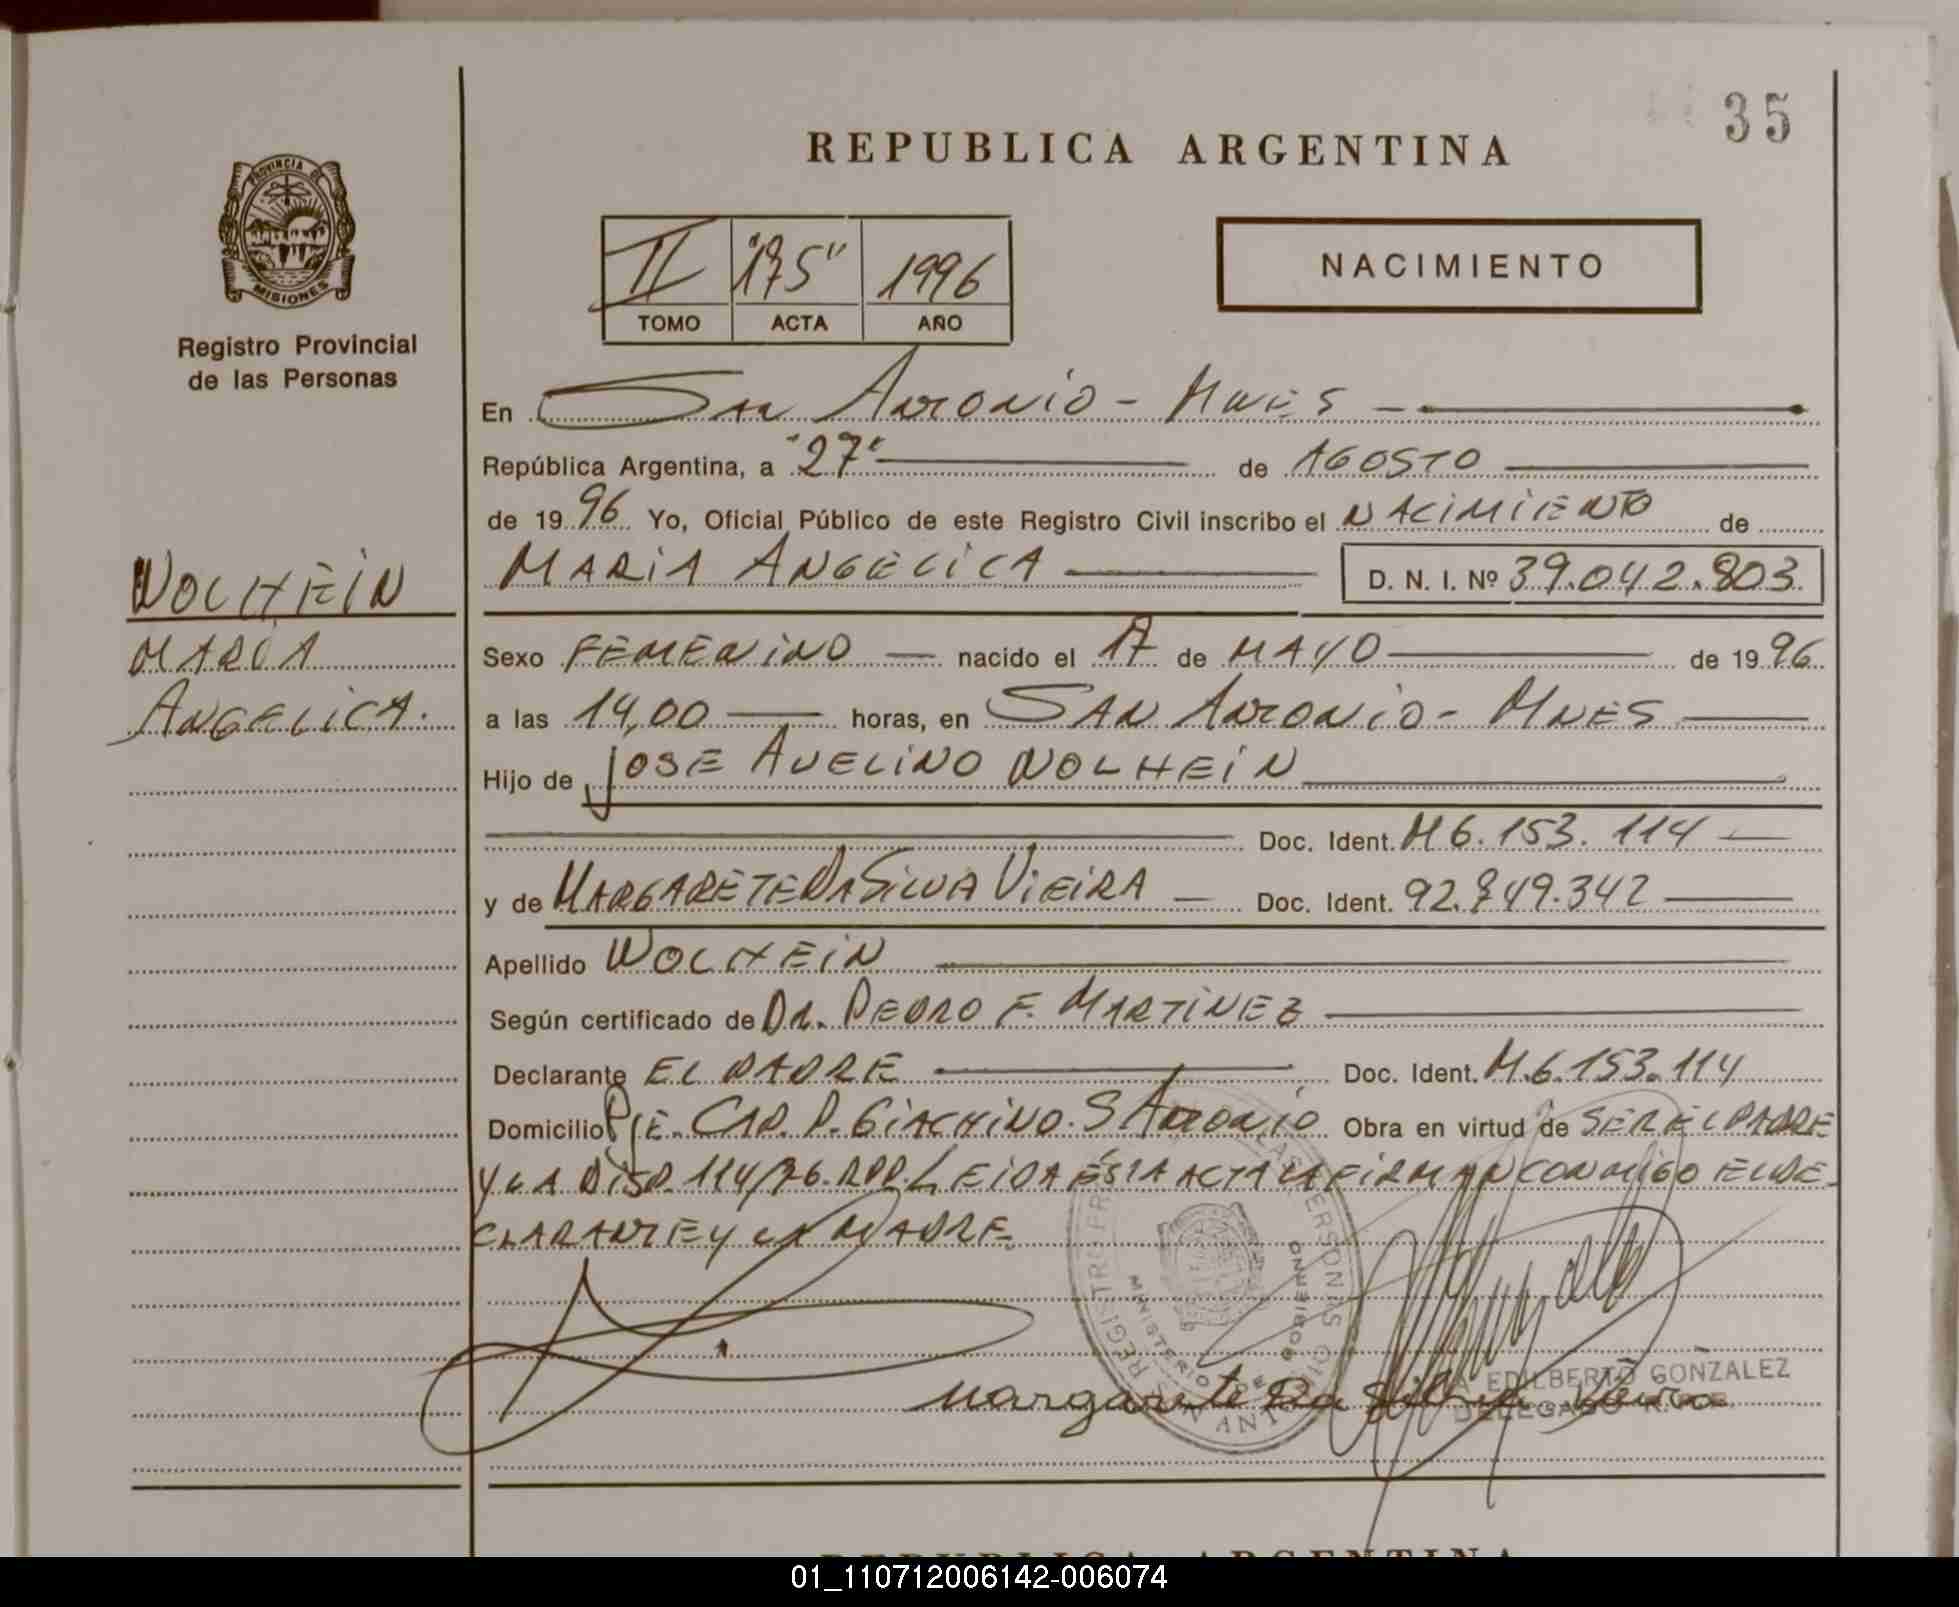 35
REPUBLICA ARGENTINA
PROVINCIA DE
MISIONES
Registro Provincial
de las Personas
II "175" 1996
TOMO ACTA AÑO
NACIMIENTO
En San Antonio - Mnes
República Argentina, a "27" de AGOSTO
de 1996 Yo, Oficial Público de este Registro Civil inscribo el NACIMIENTO de
MARIA ANGELICA D. N. I. Nº 39.042.803.
WOLHEIN
MARIA
ANGELICA.
Sexo FEMENINO nacido el 17 de MAYO de 1996
a las 14,00 horas, en SAN ANTONIO - MNES
Hijo de JOSE AVELINO WOLHEIN
Doc. Ident. M 6.153.114
y de MARGARETE DA SILVA VIEIRA Doc. Ident. 92.849.342
Apellido WOLHEIN
Según certificado de DR. PEDRO F. MARTINEZ
Declarante EL PADRE Doc. Ident. M.6.153.114
Domicilio PJE. CAP. P. GIACHINO. S ANTONIO Obra en virtud de SER EL PADRE
Y LA DISP. 114/76. RPP. LEIDA ESTA ACTA LA FIRMAN CONMIGO EL DE
CLARANTE Y LA MADRE.
MINISTERIO DE GOBIERNO
Margarete Da Silva Vieira
EDILBERTO GONZALEZ
DELEGADO
REPUBLICA ARGENTINA
01_110712006142-006074